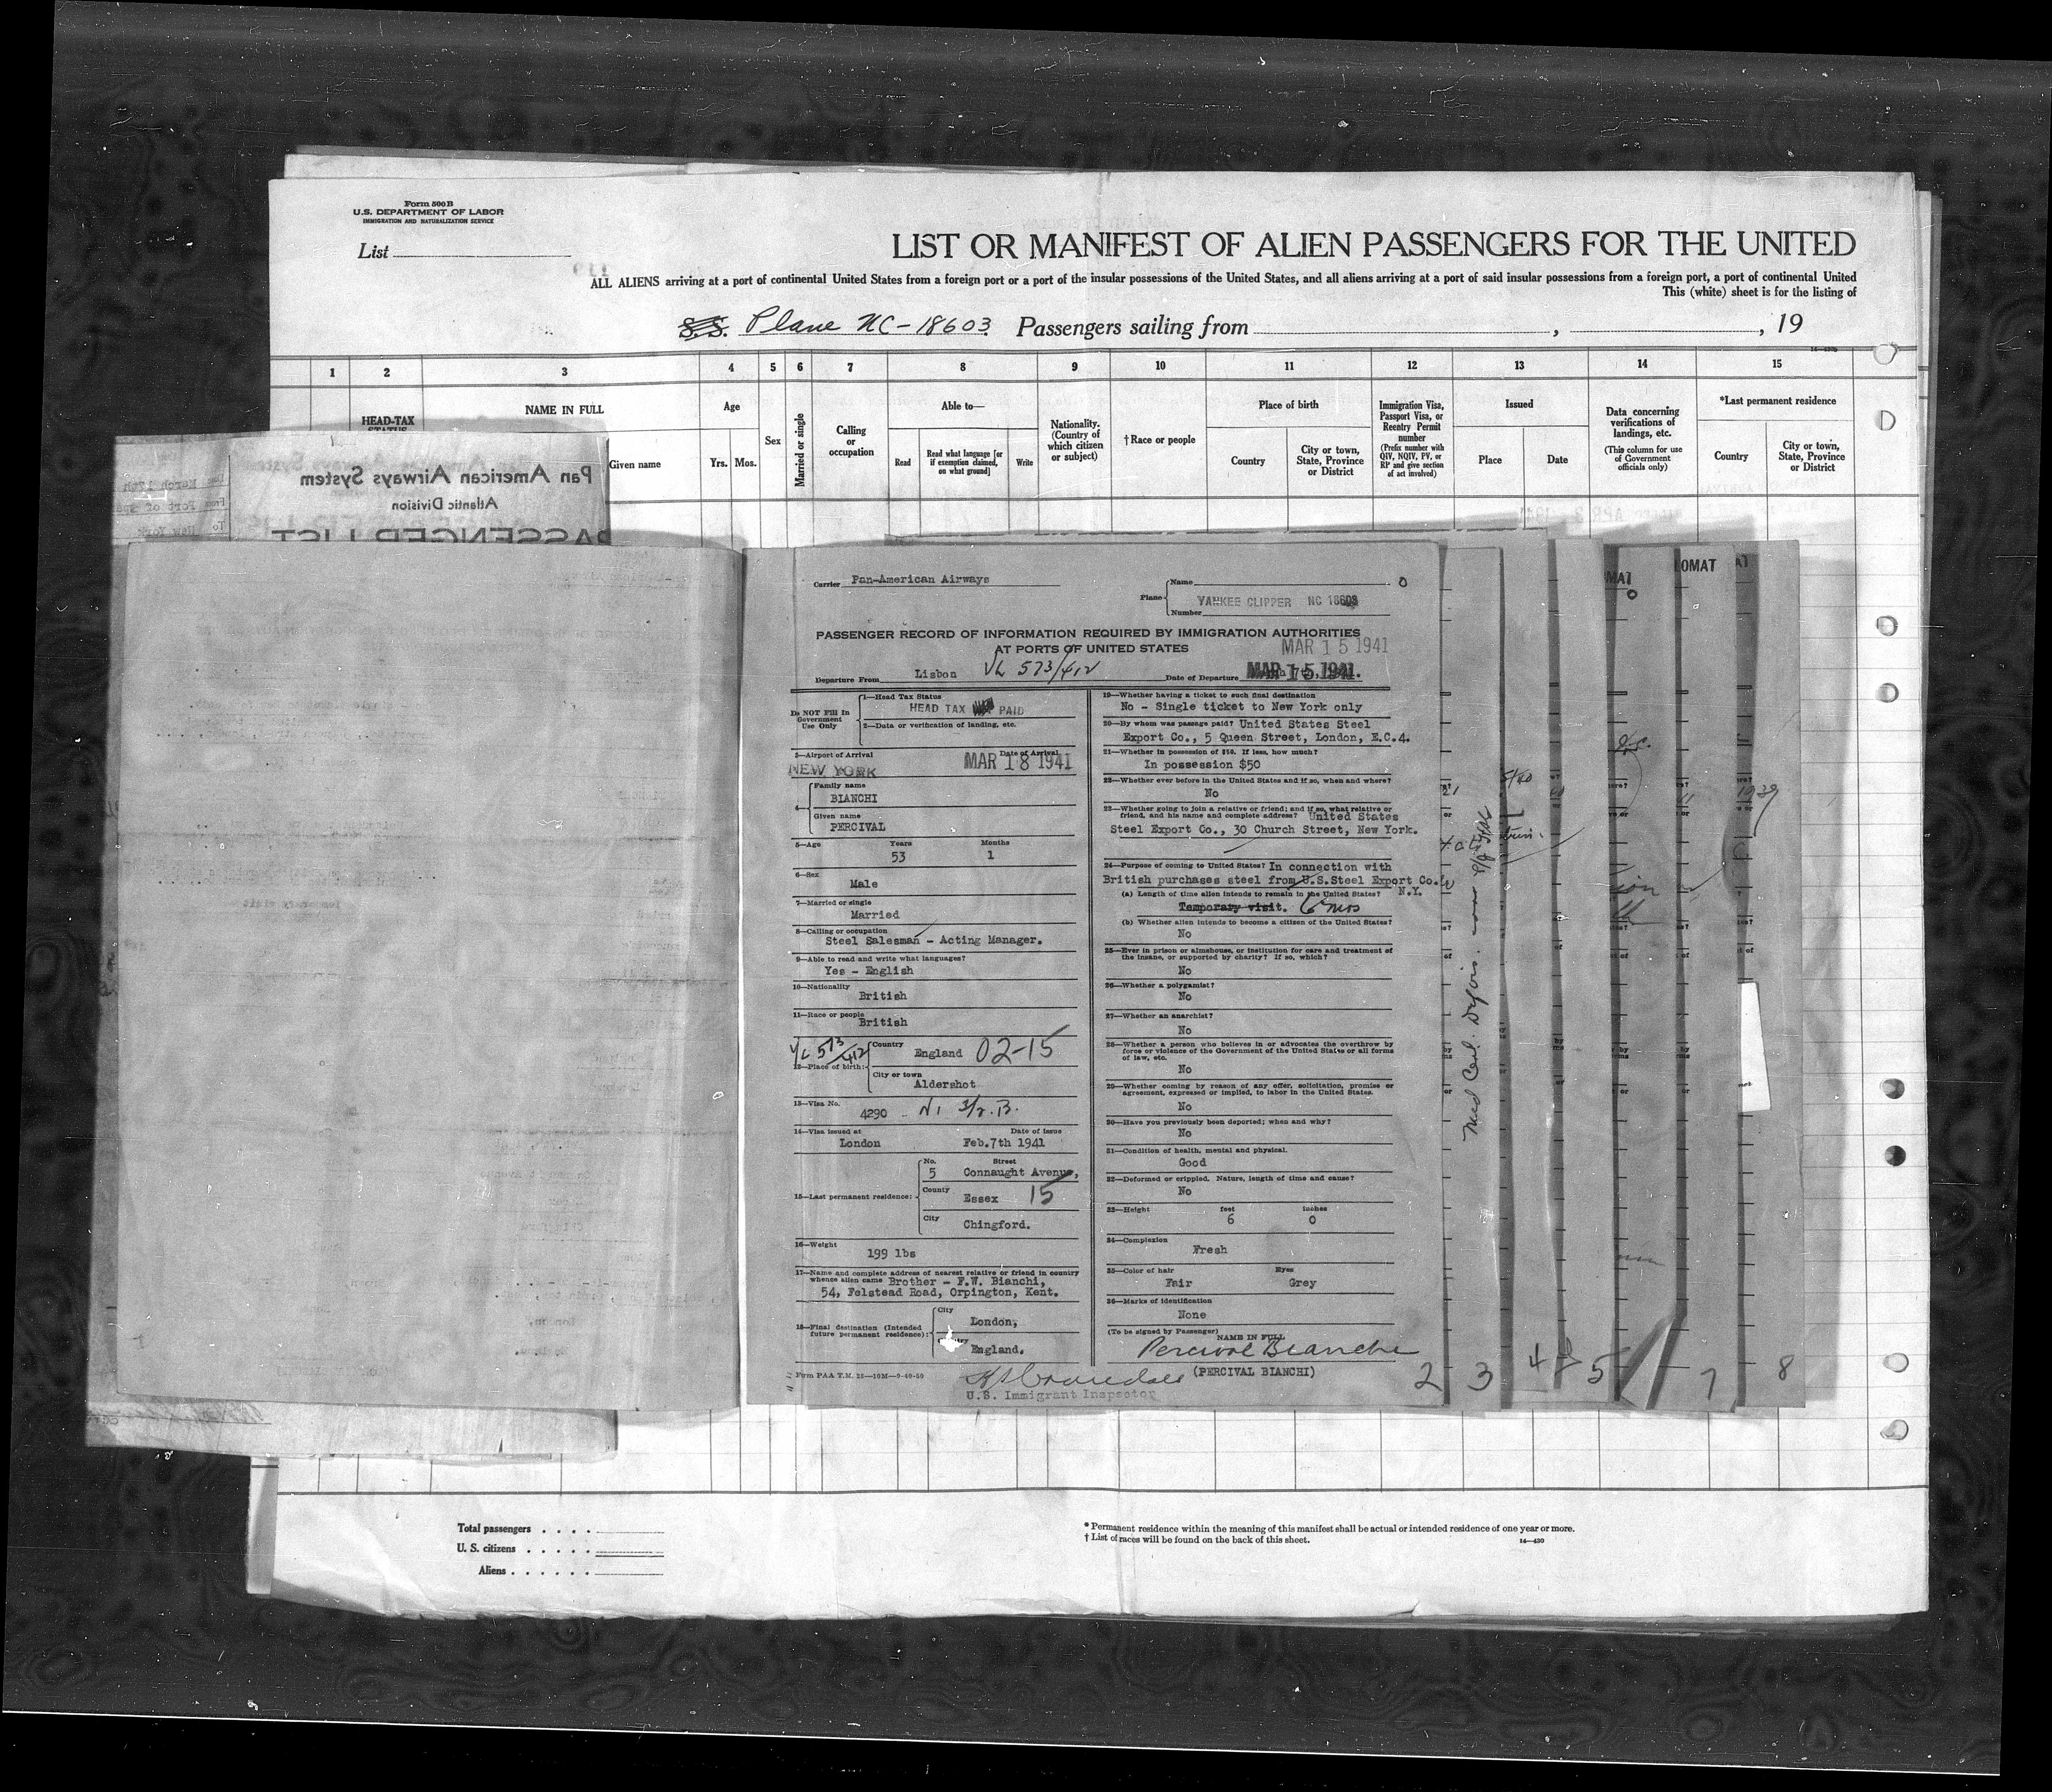 Form 500 B
U.S. DEPARTMENT OF LABOR
IMMIGRATION AND NATURALIZATION SERVICE
List
LIST OR MANIFEST OF ALIEN PASSENGERS FOR THE UNITED
ALL ALIENS arriving at a port of continental United States from a foreign port or a port of the insular possessions of the United States, and all aliens arriving at a port of said insular possessions from a foreign port, a port of continental United
This (white) sheet is for the listing of
S.S. Plane NC-18603 Passengers sailing from , , 19
1 2 3 4 5 6 7 8 9 10 11 12 13 14 15
HEAD-TAX STATUS
NAME IN FULL
Given name
Age
Yrs. Mos.
Sex
Married or single
Calling or occupation
Able to—
Read
Read what language [or if exemption claimed, on what ground]
Write
Nationality. (Country of which citizen or subject)
†Race or people
Place of birth
Country
City or town, State, Province or District
Immigration Visa, Passport Visa, or Reentry Permit number
(Prefix number with QIV, NQIV, PV, or RP and give section of act involved)
Issued
Place
Date
Data concerning verifications of landings, etc.
(This column for use of Government officials only)
*Last permanent residence
Country
City or town, State, Province or District
Pan American Airways System
Atlantic Division
PASSENGER LIST
Carrier Pan-American Airways
Plane Name
YANKEE CLIPPER NC 18603
Number
PASSENGER RECORD OF INFORMATION REQUIRED BY IMMIGRATION AUTHORITIES
AT PORTS OF UNITED STATES
MAR 15 1941
Departure From Lisbon VL 573/412 Date of Departure MAR 15 1941.
Do NOT Fill In Government Use Only
1—Head Tax Status
HEAD TAX PAID
2—Data or verification of landing, etc.
3—Airport of Arrival Date of Arrival
NEW YORK MAR 18 1941
4— Family name
BIANCHI
Given name
PERCIVAL
5—Age Years Months
53 1
6—Sex
Male
7—Married or single
Married
8—Calling or occupation
Steel Salesman - Acting Manager.
9—Able to read and write what languages?
Yes - English
10—Nationality
British
11—Race or people
British
VL 573/412
12—Place of birth: Country
England 02-15
City or town
Aldershot
13—Visa No.
4290
14—Visa issued at Date of issue
London Feb.7th 1941
15—Last permanent residence: No. Street
5 Connaught Avenue,
County
Essex 15
City
Chingford.
16—Weight
199 lbs
17—Name and complete address of nearest relative or friend in country
whence alien came Brother - F.W. Bianchi,
54, Felstead Road, Orpington, Kent.
18—Final destination (Intended future permanent residence): City
London,
England.
Form PAA T.M. 25—10M—9-40-50
U.S. Immigrant Inspector
19—Whether having a ticket to such final destination
No - Single ticket to New York only
20—By whom was passage paid? United States Steel
Export Co., 5 Queen Street, London, E.C.4.
21—Whether in possession of $50. If less, how much?
In possession $50
22—Whether ever before in the United States and if so, when and where?
No
23—Whether going to join a relative or friend; and if so, what relative or
friend, and his name and complete address? United States
Steel Export Co., 30 Church Street, New York.
24—Purpose of coming to United States? In connection with
British purchases steel from U.S.Steel Export Co.
N.Y.
(a) Length of time alien intends to remain in the United States?
Temporary visit. 6 mos
(b) Whether alien intends to become a citizen of the United States?
No
25—Ever in prison or almshouse, or institution for care and treatment of
the insane, or supported by charity? If so, which?
No
26—Whether a polygamist?
No
27—Whether an anarchist?
No
28—Whether a person who believes in or advocates the overthrow by
force or violence of the Government of the United States or all forms
of law, etc.
No
29—Whether coming by reason of any offer, solicitation, promise or
agreement, expressed or implied, to labor in the United States.
No
30—Have you previously been deported; when and why?
No
31—Condition of health, mental and physical.
Good
32—Deformed or crippled. Nature, length of time and cause?
No
33—Height feet inches
6 0
34—Complexion
Fresh
35—Color of hair Eyes
Fair Grey
36—Marks of identification
None
(To be signed by Passenger)
NAME IN FULL
Percival Bianchi
(PERCIVAL BIANCHI)
2 3 4 5 7 8
Total passengers
U. S. citizens
Aliens
* Permanent residence within the meaning of this manifest shall be actual or intended residence of one year or more.
† List of races will be found on the back of this sheet.
14—430